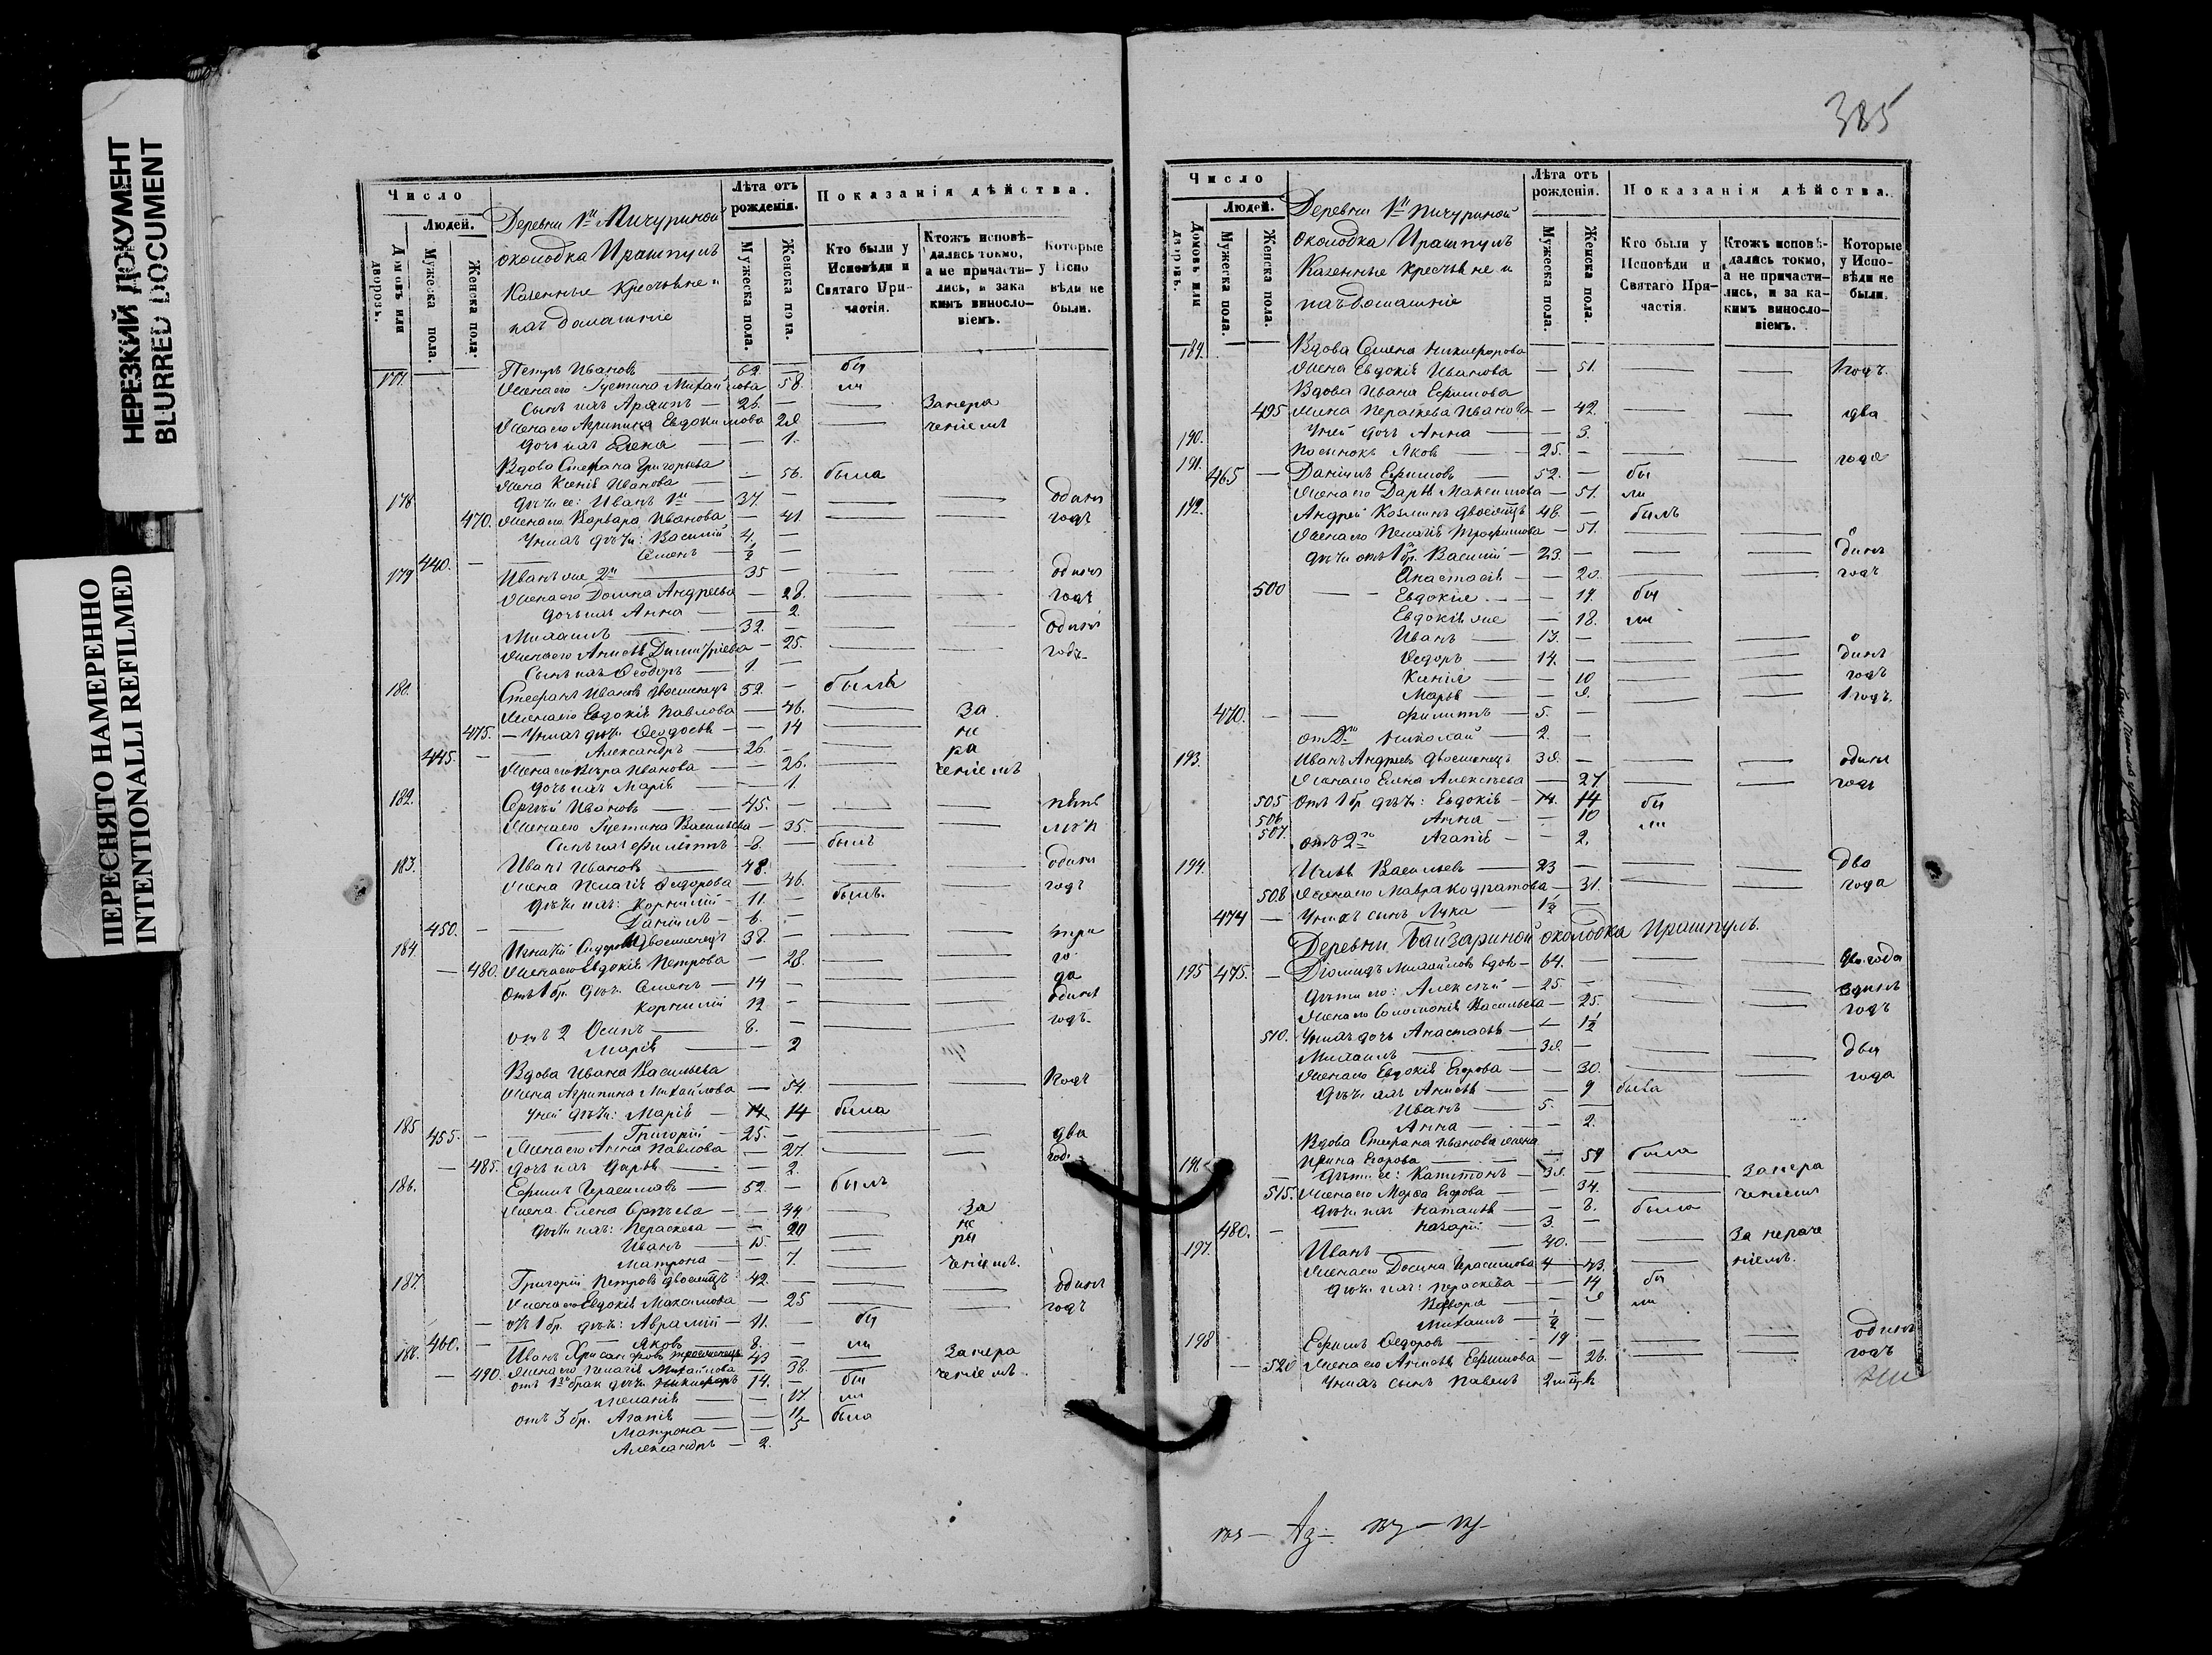 НЕРЕЗКИЙ ДОКУМЕНТ
BLURRED DOCUMENT
ПЕРЕСНЯТО НАМЕРЕННО
INTENTIONALLI REFILMED
Число
Людей.
Домовъ или дворовъ.
Мужеска пола.
Женска пола.
Деревни 1й Пичуриной
околодка Ирашпулъ
Казенные крестьяне и
ихъ домашніе
Лѣта отъ рожденія.
Мужеска пола.
Женска пола.
Показанія дѣйства.
Кто были у Исповѣди и Святаго Причастія.
Ктожъ исповѣдались токмо, а не причастились, и зака кимъ винословіемъ.
Которые у Исповѣди не были.
177. Петръ Ивановъ — 62. бы
Жена его Густина Михайлова 58. ли
Сынъ ихъ Архипъ — 26. — — Занера
Жена его Агрипина Евдокимова 28 — ченіемъ
дочь ихъ Елена — 1.
Вдова Стефана Григорьева
жена Ксенія Иванова — 56. была
178 дѣти ее: Иванъ 1й — 37. — — — одинъ
470. Жена его Варвара Иванова — 41 — — годъ
У нихъ дѣти: Василій 4. —
440. — Семенъ — ½ —
179 Иванъ же 2й — 35 — — — одинъ
Жена его Домна Андреева — 28. — — годъ
дочь ихъ Анна — 2.
Михаилъ — 32. — — — одинъ
Жена его Анисья Димитріева — 25. — — годъ
Сынъ ихъ Ѳеодоръ — 1. —
180. Стефанъ Ивановъ двоеженецъ 52. — былъ
Жена его Евдокія Павлова — 46. — За
475. — У нихъ дѣти Ѳеодосья — 14 — не
445. — Александръ — 26. — — ра
Жена его Вѣра Иванова — 26. — ченіемъ
дочь ихъ Марія — 1.
182. Сергѣй Ивановъ — 45. — — — пять
Жена его Густина Васильева — 35. — — лѣтъ
Сынъ ихъ Филиппъ — 8. — былъ
183. Иванъ Ивановъ — 48. — — — одинъ
Жена Пелагія Ѳедорова — 46. — — годъ
Дѣти ихъ: Корнилій — 11. — былъ.
450. — Даніилъ — 6. —
184. Игнатій Сидоровъ двоеженецъ 38. — — — три
— 480. Жена его Евдокія Петрова — 28. — — го
Отъ 1 бр. дѣти Семенъ — 14 — — — да
Корнилій 12 — — — одинъ
отъ 2 Осипъ — 8. — — — годъ.
Марія — 2
Вдова Ивана Васильева
Жена Агрипина Михайлова — 54. — — 1 годъ
У ней дѣти: Марія — 14 14 была
185 455. — Григорій — 25. — — — два
Жена его Анна Павлова — 27. — — год
— 485. дочь ихъ Дарья — 2.
186. Ефимъ Герасимовъ — 52. — былъ
Жена Елена Сергѣева — 44 — За
Дѣти ихъ: Пераскева — 20 — не
Иванъ — 15. — — ра
Матрона — 7. — ченіемъ.
187. Григорій Петровъ двоеженецъ 42. — — — одинъ
Жена его Евдокія Максимова — 25 — — годъ
— отъ 1 бр. дѣти: Аврамій — 11. — бы
460. — Яковъ 8. — ли
188. Иванъ Хрисанфовъ троеженецъ 43 — — Занера
— 490. Жена его Пелагія Михайлова — 38. — ченіемъ
отъ 1го брака дѣти Никифоръ 14. — бы
Пелагія — 17. ли
отъ 3 бр. Агапія — 11 была
Матрона — 5
Александръ — 2.
385
Число
Людей.
Домовъ или дворовъ.
Мужеска пола.
Женска пола.
Деревни 1й Пичуриной
околодка Ирашпулъ
Казенные крестьяне и
ихъ домашніе
Лѣта отъ рожденія.
Мужеска пола.
Женска пола.
Показанія дѣйства.
Кто были у Исповѣди и Святаго Причастія.
Ктожъ исповѣдались токмо, а не причастились, и за какимъ винословіемъ.
Которые у Исповѣди не были.
189. Вдова Семена Никифорова
Жена Евдокія Иванова — 51. — — 1 годъ.
Вдова Ивана Ефимова
495 Жена Пераскева Иванова — 42. — — два
190. У ней дочь Анна — 3.
191. Посынокъ Яковъ — 25. — — — года
465 — Даніилъ Ефимовъ — 52. — бы
Жена его Дарья Максимова — 51. ли
192. Андрей Козминъ двоеженецъ 48. — былъ
Жена его Пелагія Трофимова — 51. — — о
дѣти отъ 1 бр. Василій — 23. — — — динъ
Анастасія — 20. — — годъ
500 — Евдокія — 19. бы
Евдокія же — 18. ли
Иванъ — 17. — — — о
Ѳедоръ — 14. — — — динъ
Ксенія — 10 — — годъ
Марья — 8. — — 1 годъ.
470. — — Филиппъ — 5. —
отъ 2го Николай — 2. —
193. Иванъ Андреевъ двоеженецъ 38. — — — одинъ
Жена его Елена Алексѣева — 27. — — годъ
505 Отъ 1 бр дѣти: Евдокія — 14. 14 бы
506 Анна — 10 ли
507. отъ 2го Агапія — 2.
194. Илья Васильевъ — 23 — — — два
508 Жена его Мавра Кодратова — 31. — — года
474 — У нихъ сынъ Лука — 1½ —
Деревни Байгариной околодка Ирашпулъ.
195 475. — Діомидъ Михайловъ вдов — 64. — — — два года
Дѣти его: Алексѣй — 25 — — — одинъ
Жена его Соломонія Васильева — 25. — — годъ
510. У нихъ дочь Анастасья — 1½
Михаилъ — 38. — — — два
Жена его Евдокія Егорова — 30. — — года
Дѣти ихъ Анисья — 9 была
Иванъ — 5. —
Анна — 2.
Вдова Стефана Иванова жена
196 Ирина Егорова — 59 была
Дѣти ее: Капитонъ — 38. — — Занера
515. Жена его Марѳа Егорова — 34. — ченіемъ
Дѣти ихъ Наталья — 8. была
480. — — Назарій — 3. —
197. Иванъ — 40. — — За нераче
Жена его Домна Герасимова — 43. — ніемъ.
дѣти ихъ: Пераскева — 14 бы
Варвара — 8 ли
Михаилъ — ½ —
198 Ефимъ Ѳедоровъ — 19 — — — одинъ
— 520 Жена его Анисья Ефимова — 26. — — годъ
У нихъ сынъ Павелъ 2